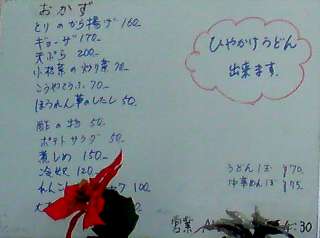 おかず
とりのから揚げ 160-
ギョーザ 170-
天ぷら 200-
小松菜の炒り煮 70-
こうやどうふ 70-
ほうれん草のしたし 50-
酢の物 50-
ポテトサラダ 50-
煮しめ 150-
冷奴 120-
れんこん 100-
ひやかけうどん
出来ます。
うどん1玉 ¥70
中華めん1玉 ¥75
営業 :30